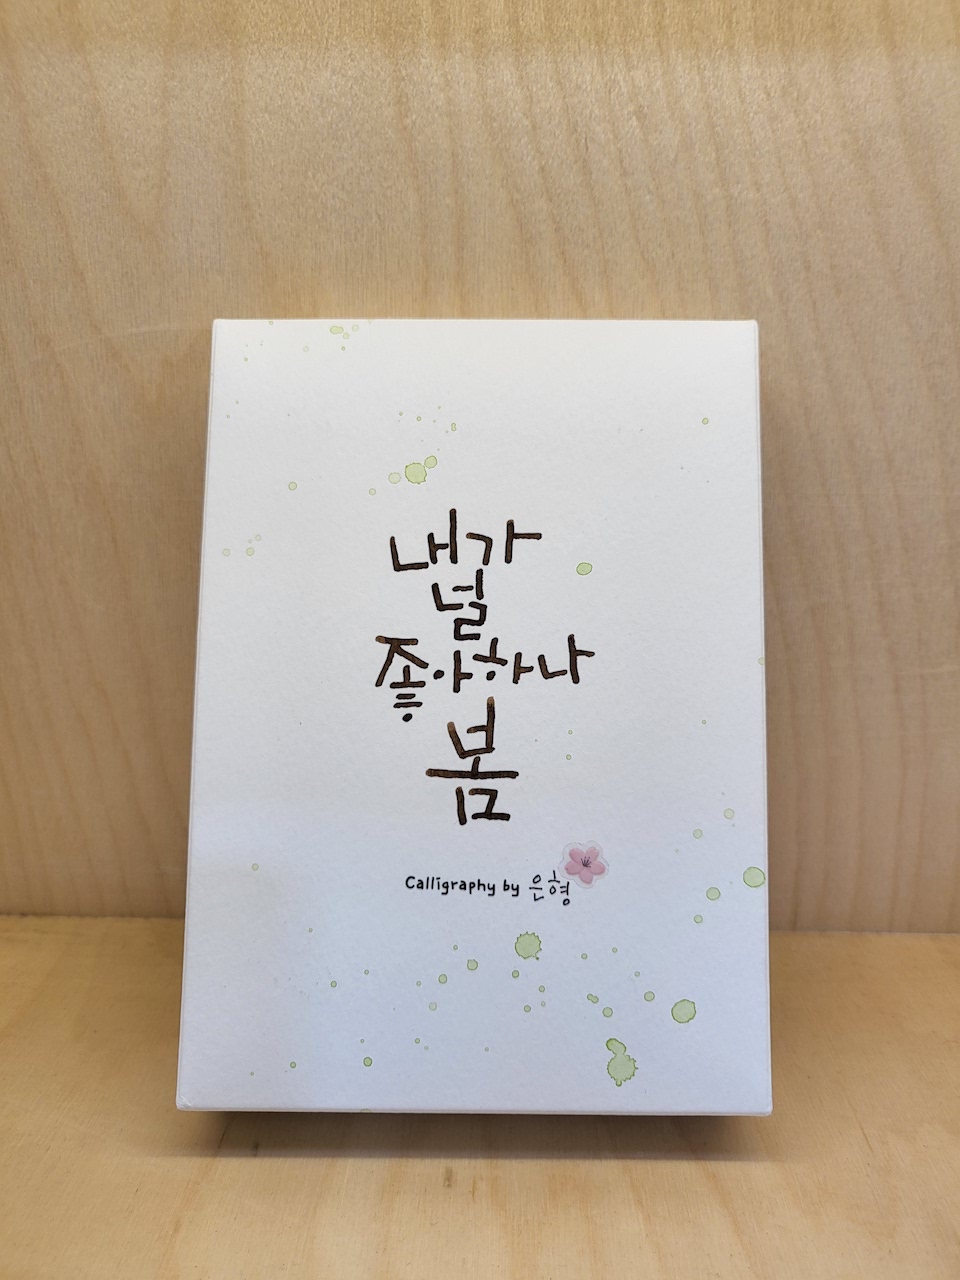 내가
널
좋아하나
봄
Calligraphy by 은형